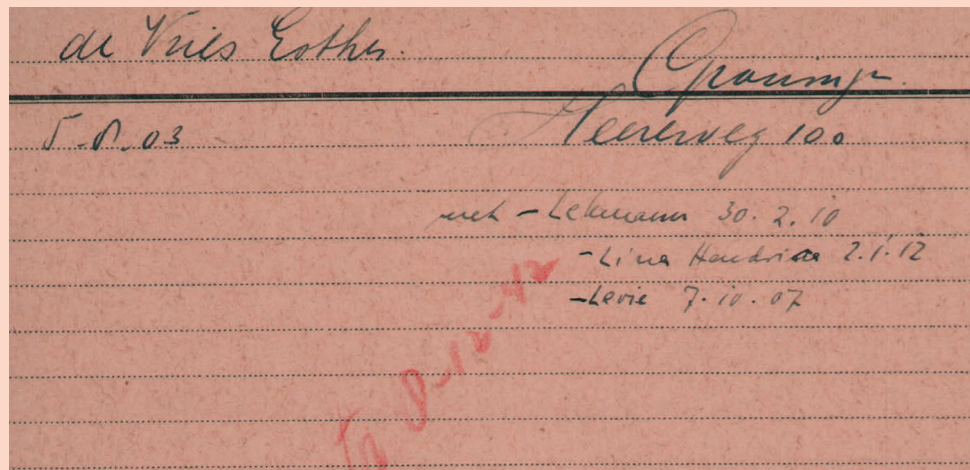 de Vries Esther.
Groningen
5.8.03
Heereweg 100
met - Lehmann 30.2.10
- Lina Hendrina 2.1.12
- Levie 7.10.07
8-12-42